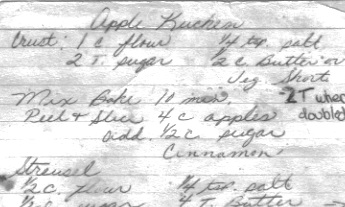 Apple Kuchen
Crust: 1 c flour 1/4 tsp salt
2 T. sugar 1/2 c Butter or
Veg Short
Mix Bake 10 min. 2T when
Peel & Slice 4 c apples doubled
add 1/2 c sugar
Cinnamon
Streusel
1/2 c. flour 1/4 tsp salt
1/2 c sugar 4 T. Butter